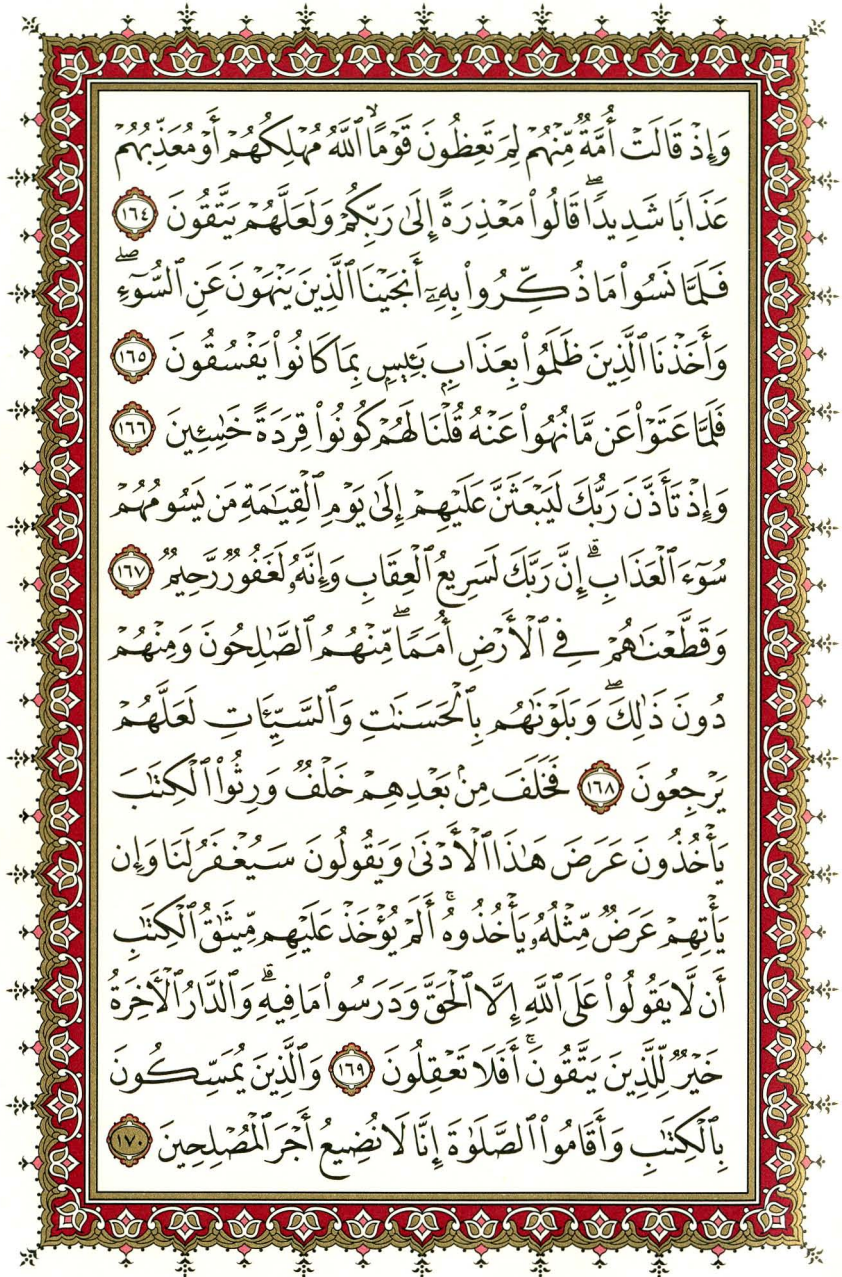 وَإِذْ قَالَتْ أُمَّةٌ مِّنْهُمْ لِمَ تَعِظُونَ قَوْمًا ۙ ٱللَّهُ مُهْلِكُهُمْ أَوْ مُعَذِّبُهُمْ
عَذَابًا شَدِيدًا ۖ قَالُوا۟ مَعْذِرَةً إِلَىٰ رَبِّكُمْ وَلَعَلَّهُمْ يَتَّقُونَ ١٦٤
فَلَمَّا نَسُوا۟ مَا ذُكِّرُوا۟ بِهِۦٓ أَنجَيْنَا ٱلَّذِينَ يَنْهَوْنَ عَنِ ٱلسُّوٓءِ ۖ
وَأَخَذْنَا ٱلَّذِينَ ظَلَمُوا۟ بِعَذَابٍۭ بَـِٔيسٍۭ بِمَا كَانُوا۟ يَفْسُقُونَ ١٦٥
فَلَمَّا عَتَوْا۟ عَن مَّا نُهُوا۟ عَنْهُ قُلْنَا لَهُمْ كُونُوا۟ قِرَدَةً خَـٰسِـِٔينَ ١٦٦
وَإِذْ تَأَذَّنَ رَبُّكَ لَيَبْعَثَنَّ عَلَيْهِمْ إِلَىٰ يَوْمِ ٱلْقِيَـٰمَةِ مَن يَسُومُهُمْ
سُوٓءَ ٱلْعَذَابِ ۗ إِنَّ رَبَّكَ لَسَرِيعُ ٱلْعِقَابِ وَإِنَّهُۥ لَغَفُورٌ رَّحِيمٌ ١٦٧
وَقَطَّعْنَـٰهُمْ فِى ٱلْأَرْضِ أُمَمًا ۖ مِّنْهُمُ ٱلصَّـٰلِحُونَ وَمِنْهُمْ
دُونَ ذَٰلِكَ ۖ وَبَلَوْنَـٰهُم بِٱلْحَسَنَـٰتِ وَٱلسَّيِّـَٔاتِ لَعَلَّهُمْ
يَرْجِعُونَ ١٦٨ فَخَلَفَ مِنۢ بَعْدِهِمْ خَلْفٌ وَرِثُوا۟ ٱلْكِتَـٰبَ
يَأْخُذُونَ عَرَضَ هَـٰذَا ٱلْأَدْنَىٰ وَيَقُولُونَ سَيُغْفَرُ لَنَا وَإِن
يَأْتِهِمْ عَرَضٌ مِّثْلُهُۥ يَأْخُذُوهُ ۚ أَلَمْ يُؤْخَذْ عَلَيْهِم مِّيثَـٰقُ ٱلْكِتَـٰبِ
أَن لَّا يَقُولُوا۟ عَلَى ٱللَّهِ إِلَّا ٱلْحَقَّ وَدَرَسُوا۟ مَا فِيهِ ۗ وَٱلدَّارُ ٱلْـَٔاخِرَةُ
خَيْرٌ لِّلَّذِينَ يَتَّقُونَ ۚ أَفَلَا تَعْقِلُونَ ١٦٩ وَٱلَّذِينَ يُمَسِّكُونَ
بِٱلْكِتَـٰبِ وَأَقَامُوا۟ ٱلصَّلَوٰةَ إِنَّا لَا نُضِيعُ أَجْرَ ٱلْمُصْلِحِينَ ١٧٠